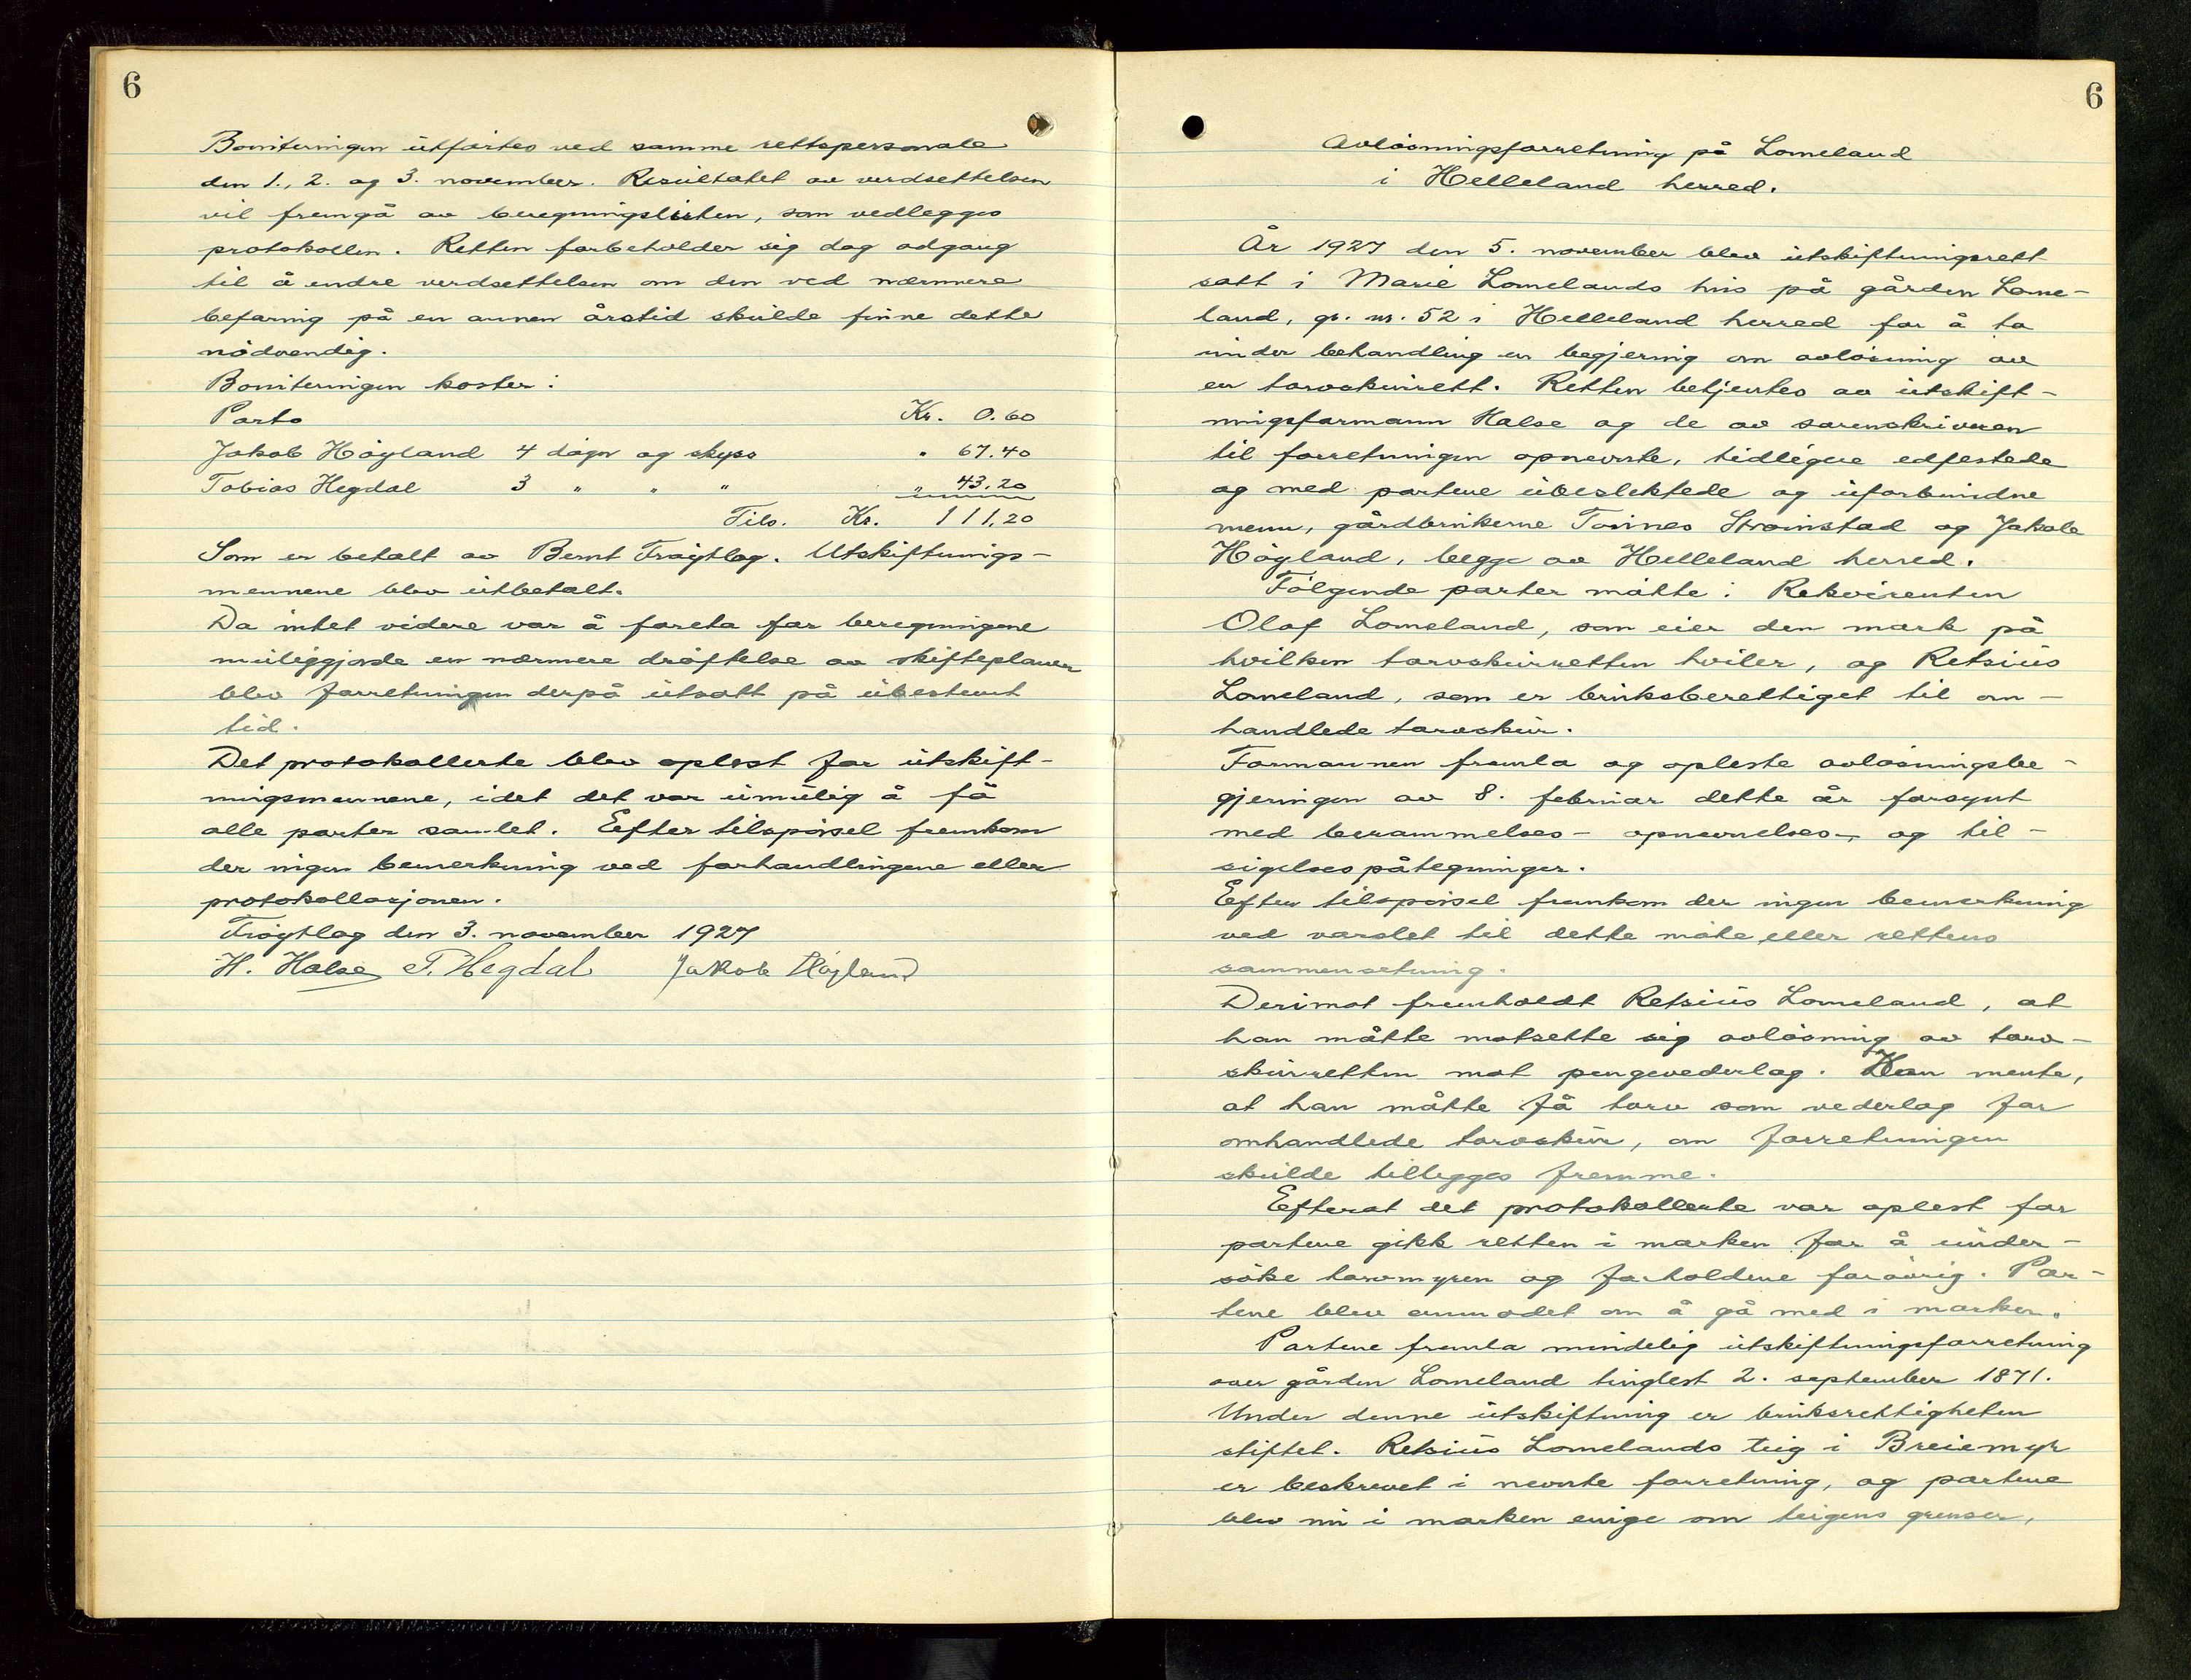 6
Boniteringen utførtes ved samme rettspersonale
den 1., 2. og 3. november. Resultatet av verdsettelsen
vil fremgå av beregningslisten, som vedlegges
protokollen. Retten forbeholder sig dog adgang
til å endre verdsettelsen om den ved nærmere
befaring på en annen årstid skulde finne dette
nödvendig.
Boniteringen koster:
Porto Kr. 0.60
Jakob Höyland 4 dager og skyss " 67.40
Tobias Hegdal 3 " " " " 43.20
Tils. Kr. 111,20
Som er betalt av Bernt Tröytlog. Utskiftnings-
mennene blev utbetalt.
Da intet videre var å foreta før beregningene
muliggjorde en nærmere dröftelse av skifteplanen
blev forretningen derpå utsatt på ubestemt
tid.
Det protokollerte blev oplest for utskift-
ningsmennene, idet det var umulig å få
alle parter samlet. Eefter tilspørsel fremkom
der ingen bemerkning ved forhandlingene eller
protokollasjonen.
Tröytlog den 3. november 1927
H. Halse T. Hegdal Jakob Höyland
6
Avlösningsforretning på Lomeland
i Helleland herred.
År 1927 den 5. november blev utskiftningsrett
satt i Marie Lomelands hus på gården Lome-
land, gr. nr. 52 i Helleland herred for å ta
under behandling en begjering om avlösning av
en torvskurrett. Retten betjentes av utskift-
ningsformann Halse og de av sorenskriveren
til forretningen opnevnte, tidligere edfestede
og med partene ubeslektede og uforbundne
menn, gårdbrukerne Tönnes Svanstad og Jakob
Höyland, begge av Helleland herred.
Fölgende parter mötte: Rekvirenten
Olaf Lomeland, som eier den mark på
hvilken torvskurretten hviler, og Retsius
Lomeland, som er bruksberettiget til om-
handlede torvskur.
Formannen fremla og opleste avlösningsbe-
gjeringen av 8. februar dette år forsynt
med berammelses- opnevnelses-, og til-
sigelsespåtegninger.
Eefter tilspörsel fremkom der ingen bemerkning
ved varslet til dette möte eller rettens
sammensetning.
Derimot fremholdt Retsius Lomeland, at
han måtte motsette sig avlösning av torv-
skurretten mot pengevederlag. Han mente,
at han måtte få torv som vederlag for
omhandlede torvskur, om forretningen
skulde tillegges fremme.
Eefterat det protokollerte var oplest for
partene gikk retten i marken for å under-
söke torvmyren og forholdene forövrig. Par-
tene blev anmodet om å gå med i marken.
Partene fremla mindelig utskiftningsforretning
over gården Lomeland tinglest 2. september 1871.
Under denne utskiftning er bruksrettigheten
stiftet. Retsius Lomelands teig i Breiemyr
er beskrevet i nevnte forretning, og partene
blev nu i marken enige om teigens grenser,